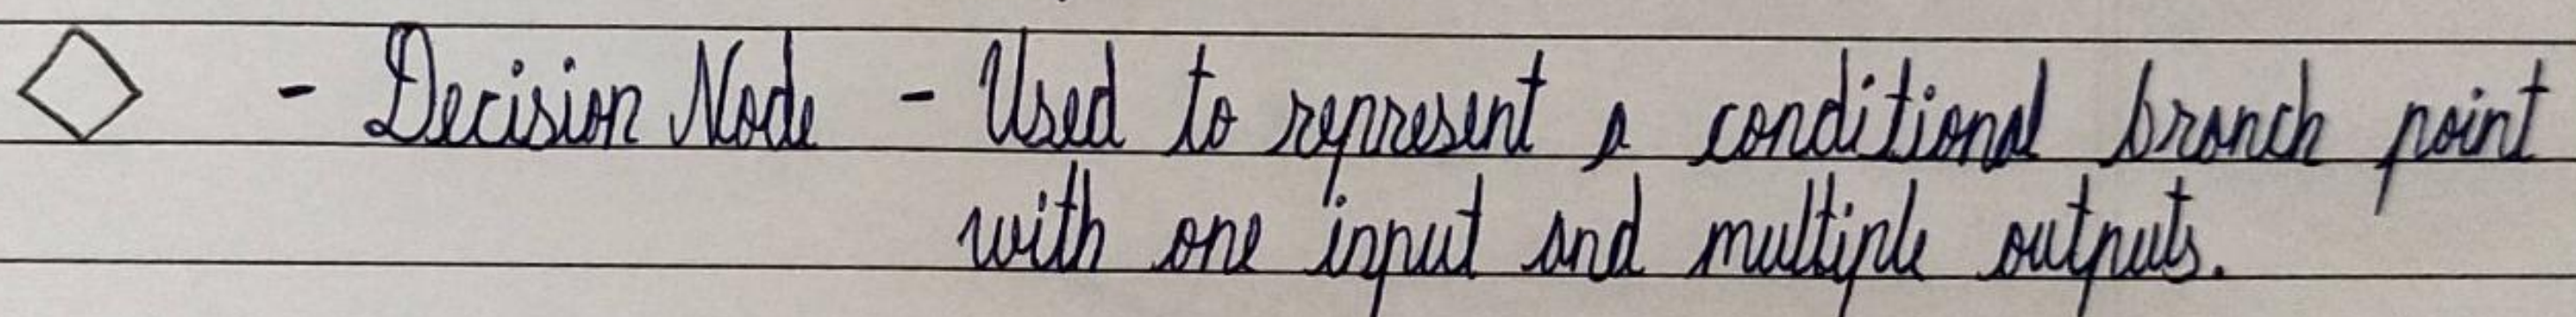 - Decision Node - Used to represent a conditional branch point
with one input and multiple outputs.